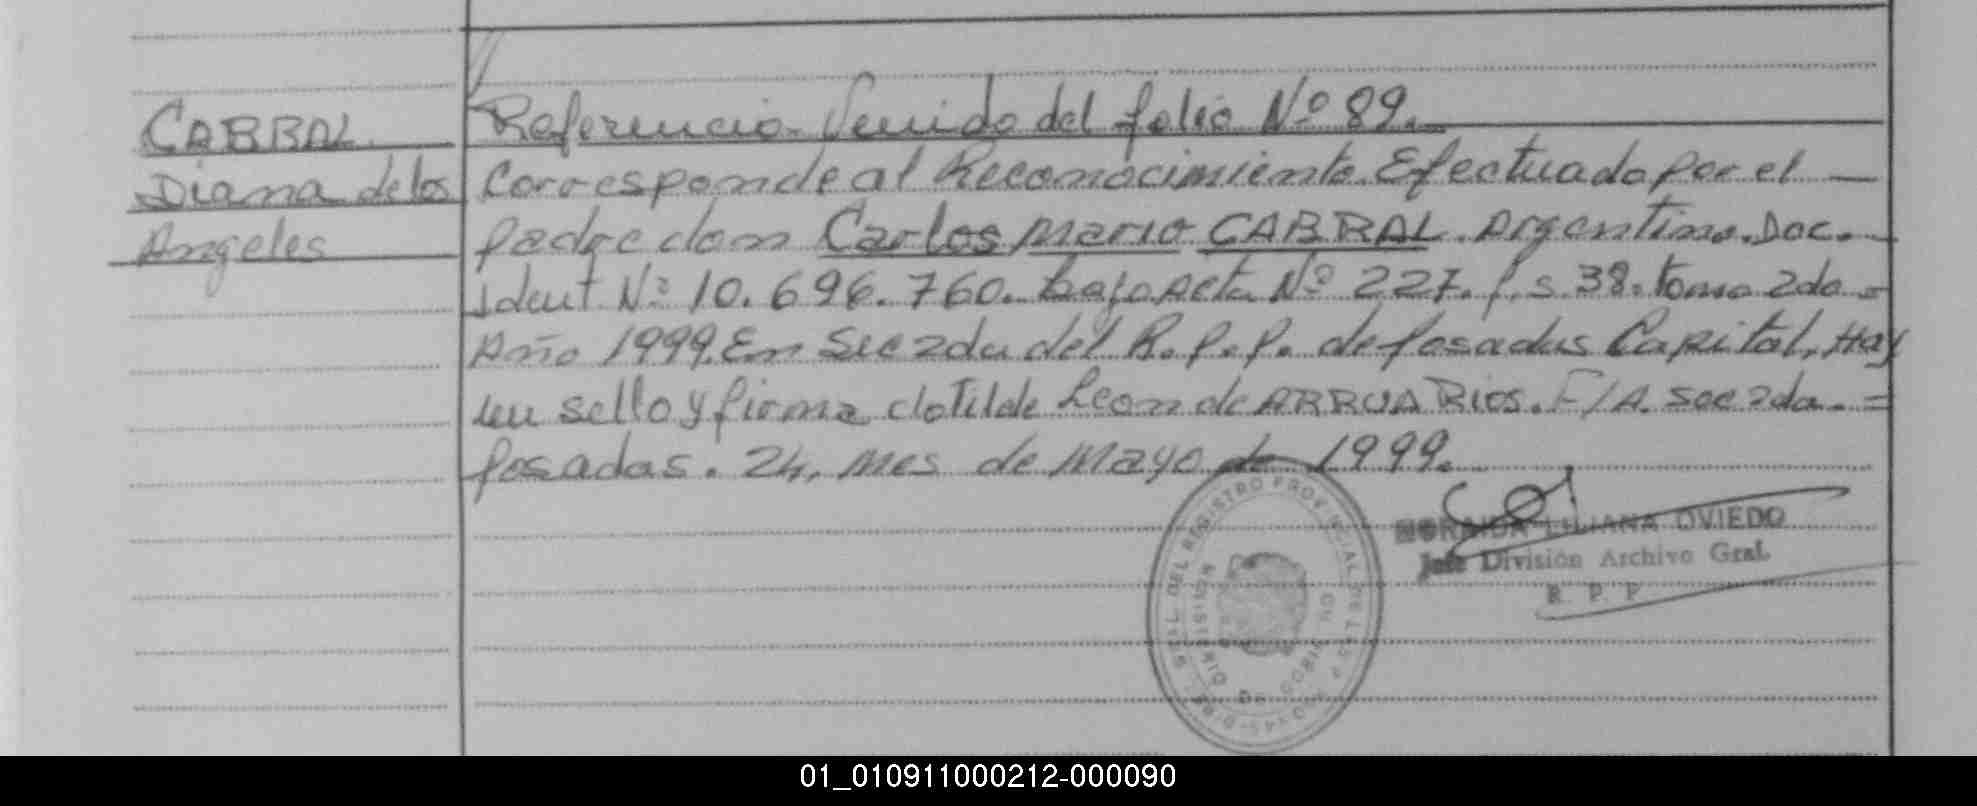 CABRAL
Diana de los
Angeles
Referencia. Venido del folio Nº 89.
Corresponde al Reconocimiento. Efectuado por el
padre don Carlos Mario CABRAL. Argentino. Doc.
Ident Nº 10.696.760. bajo Acta Nº 227. f.s. 38. tomo 2do
Año 1999. En Sec 2da del R.P.P. de Posadas Capital, Hay
un sello y firma Clotilde Leon de ARRUA Rios. F/A. Sec 2da.
Posadas. 24, mes de Mayo de 1999.
LILIANA OVIEDO
Jefe División Archivo Gral.
R P P
DEL REGISTRO PROVINCIAL DE LAS P
DIVISION
01_010911000212-000090